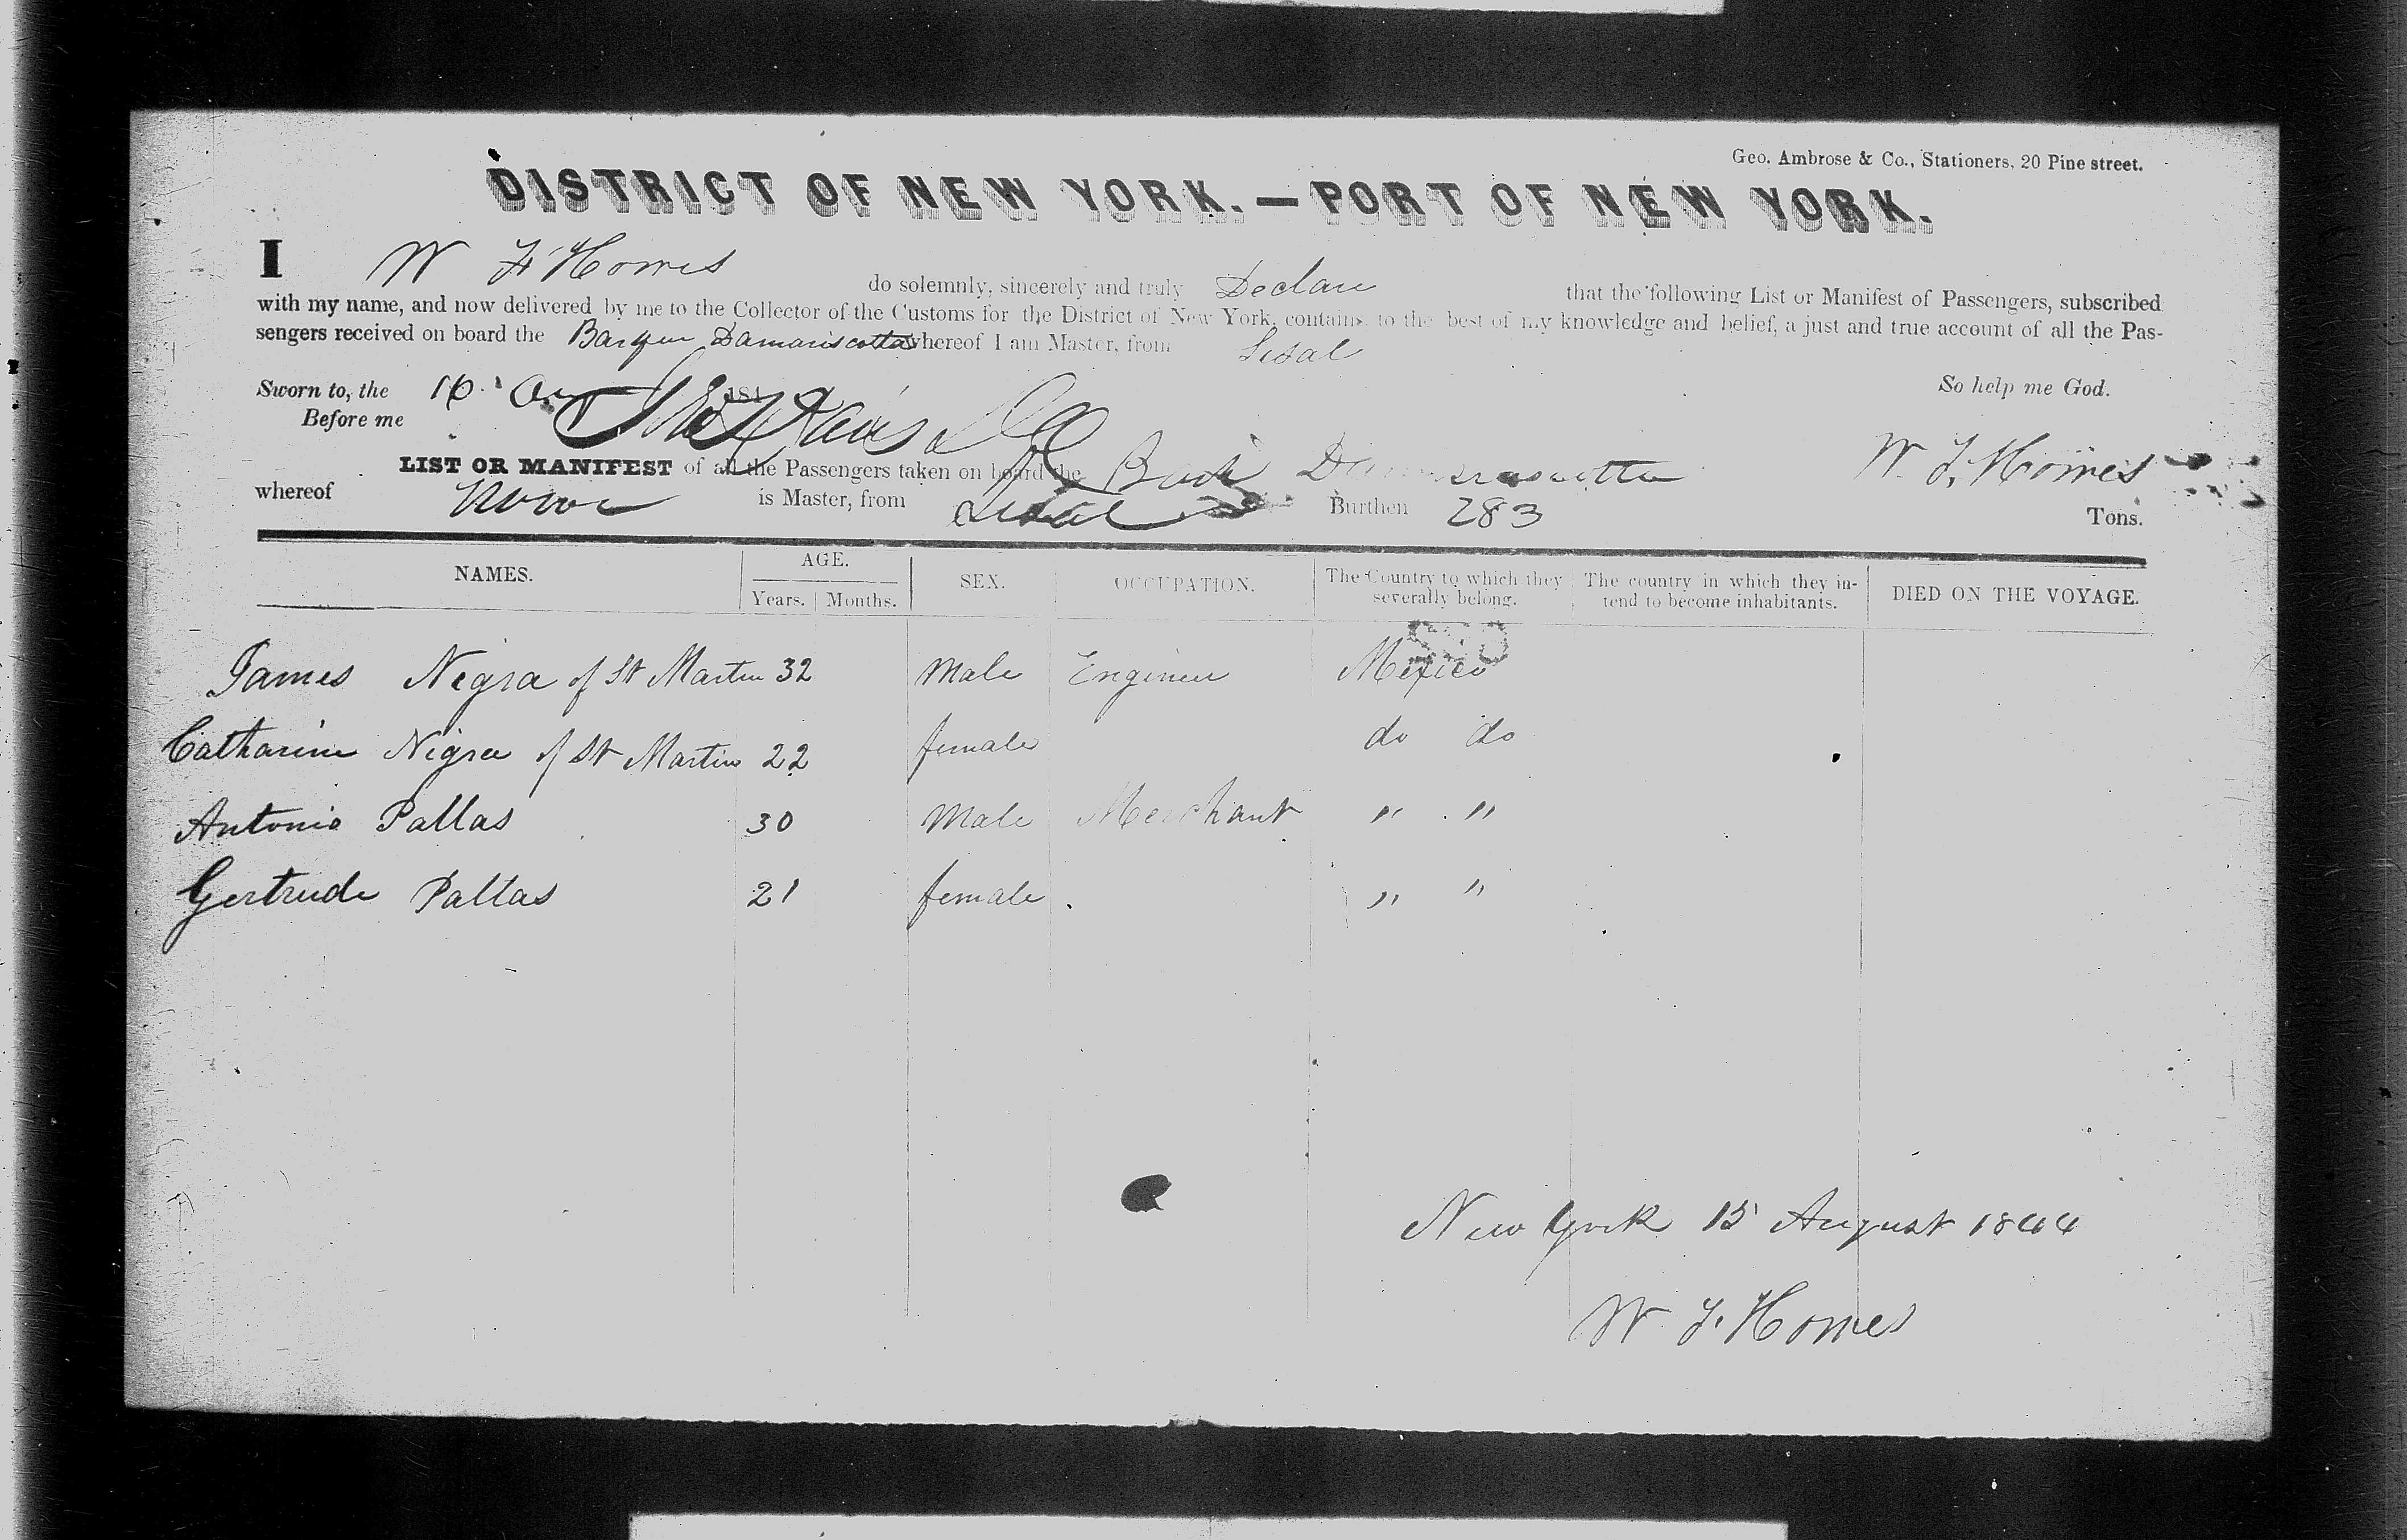 Geo. Ambrose & Co., Stationers, 20 Pine street.
DISTRICT OF NEW YORK.—PORT OF NEW YORK.
I W F Homes do solemnly, sincerely and truly Declare that the following List or Manifest of Passengers, subscribed
with my name, and now delivered by me to the Collector of the Customs for the District of New York, contains, to the best of my knowledge and belief, a just and true account of all the Pas-
sengers received on board the Barque Damariscotta whereof I am Master, from Sisal
Sworn to, the 16 So help me God.
Before me W. F. Homes
LIST OR MANIFEST of all the Passengers taken on board the Bark Damariscotta
whereof is Master, from Sisal Burthen 283 Tons.
NAMES. AGE. SEX. OCCUPATION. The Country to which they severally belong. The country in which they in-tend to become inhabitants. DIED ON THE VOYAGE.
Years. Months.
James Negra of St Martin 32 Male Engineer Mexico
Catharine Negra of St Martin 22 female do do
Antonio Pallas 30 Male Merchant " "
Gertrude Pallas 21 female " "
New York 15 August 1844
W. F. Homes